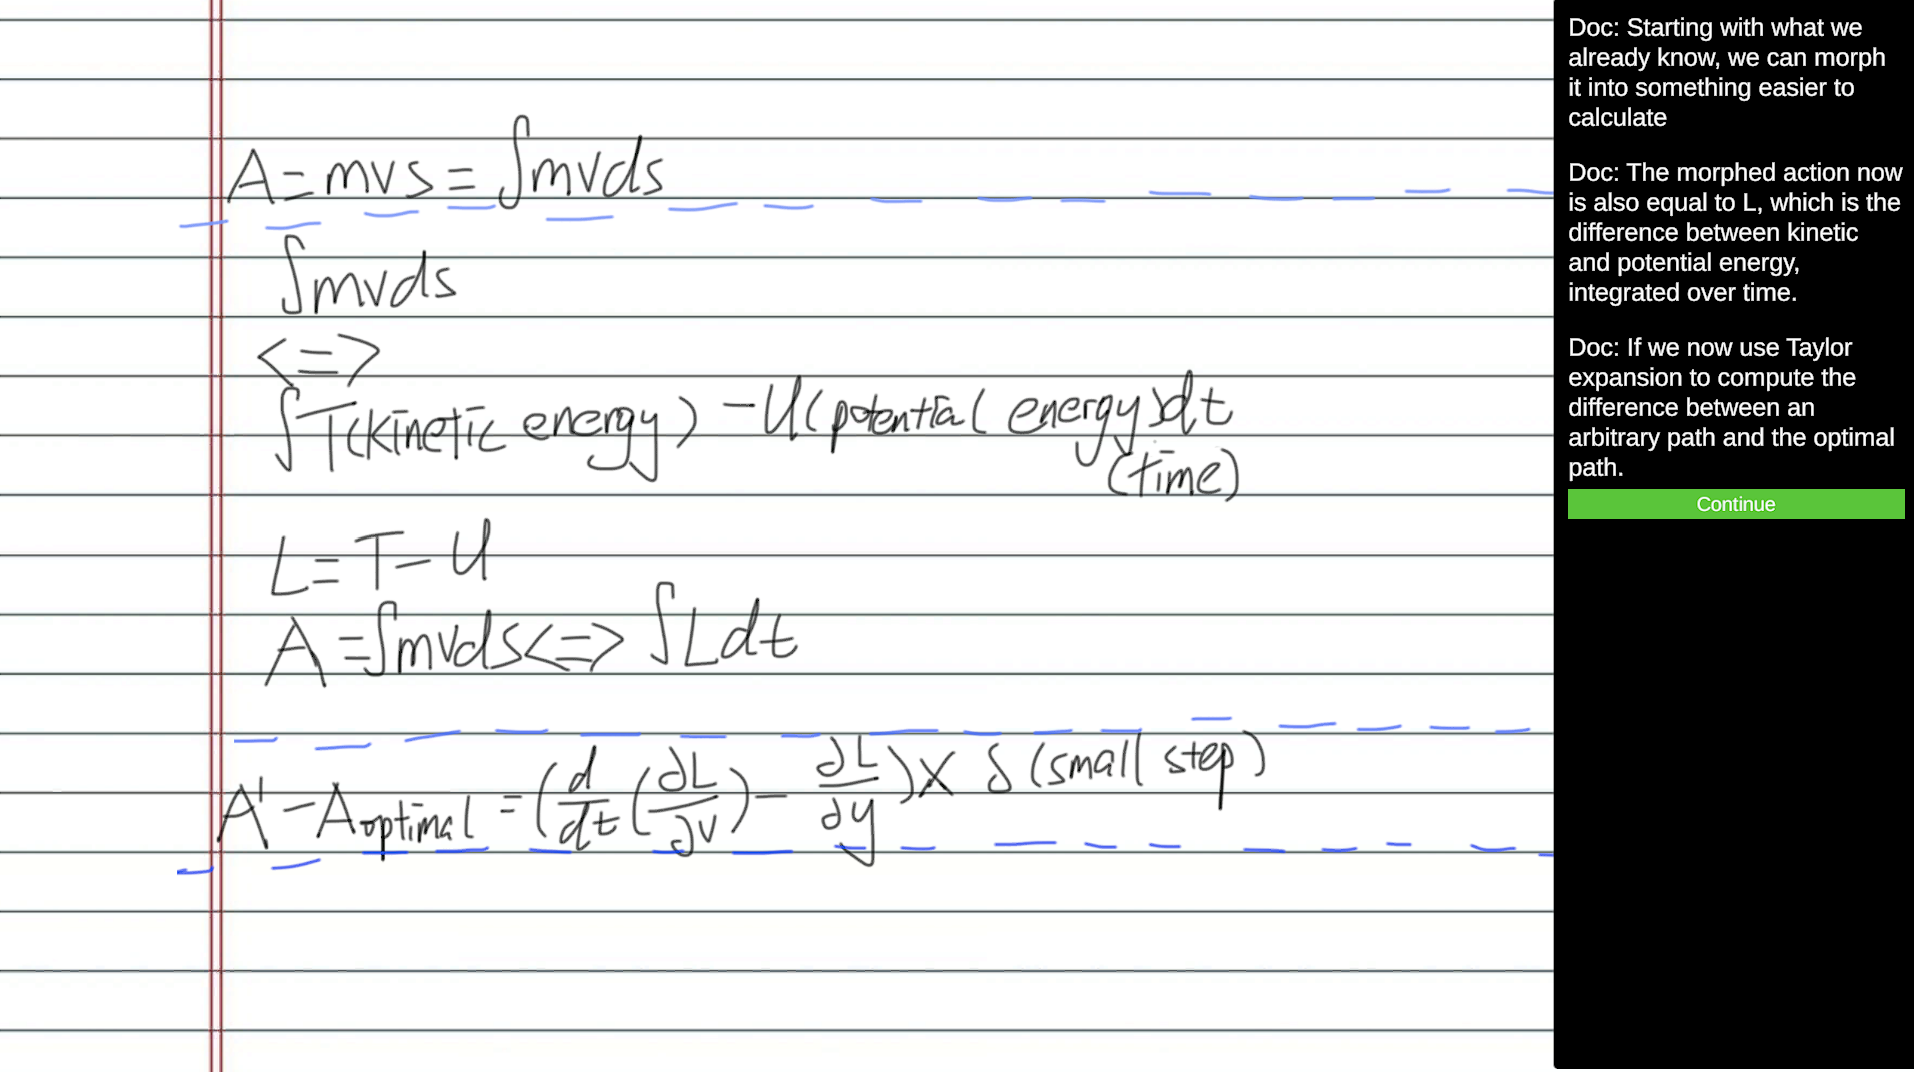 A = mvs = ∫mvds
∫mvds
<=>
∫T(kinetic energy) - U(potential energy)dt
(time)
L = T - U
A = ∫mvds <=> ∫Ldt
A' - Aoptimal = (d/dt (∂L/∂v) - ∂L/∂y) × δ (small step)
Doc: Starting with what we
already know, we can morph
it into something easier to
calculate
Doc: The morphed action now
is also equal to L, which is the
difference between kinetic
and potential energy,
integrated over time.
Doc: If we now use Taylor
expansion to compute the
difference between an
arbitrary path and the optimal
path.
Continue